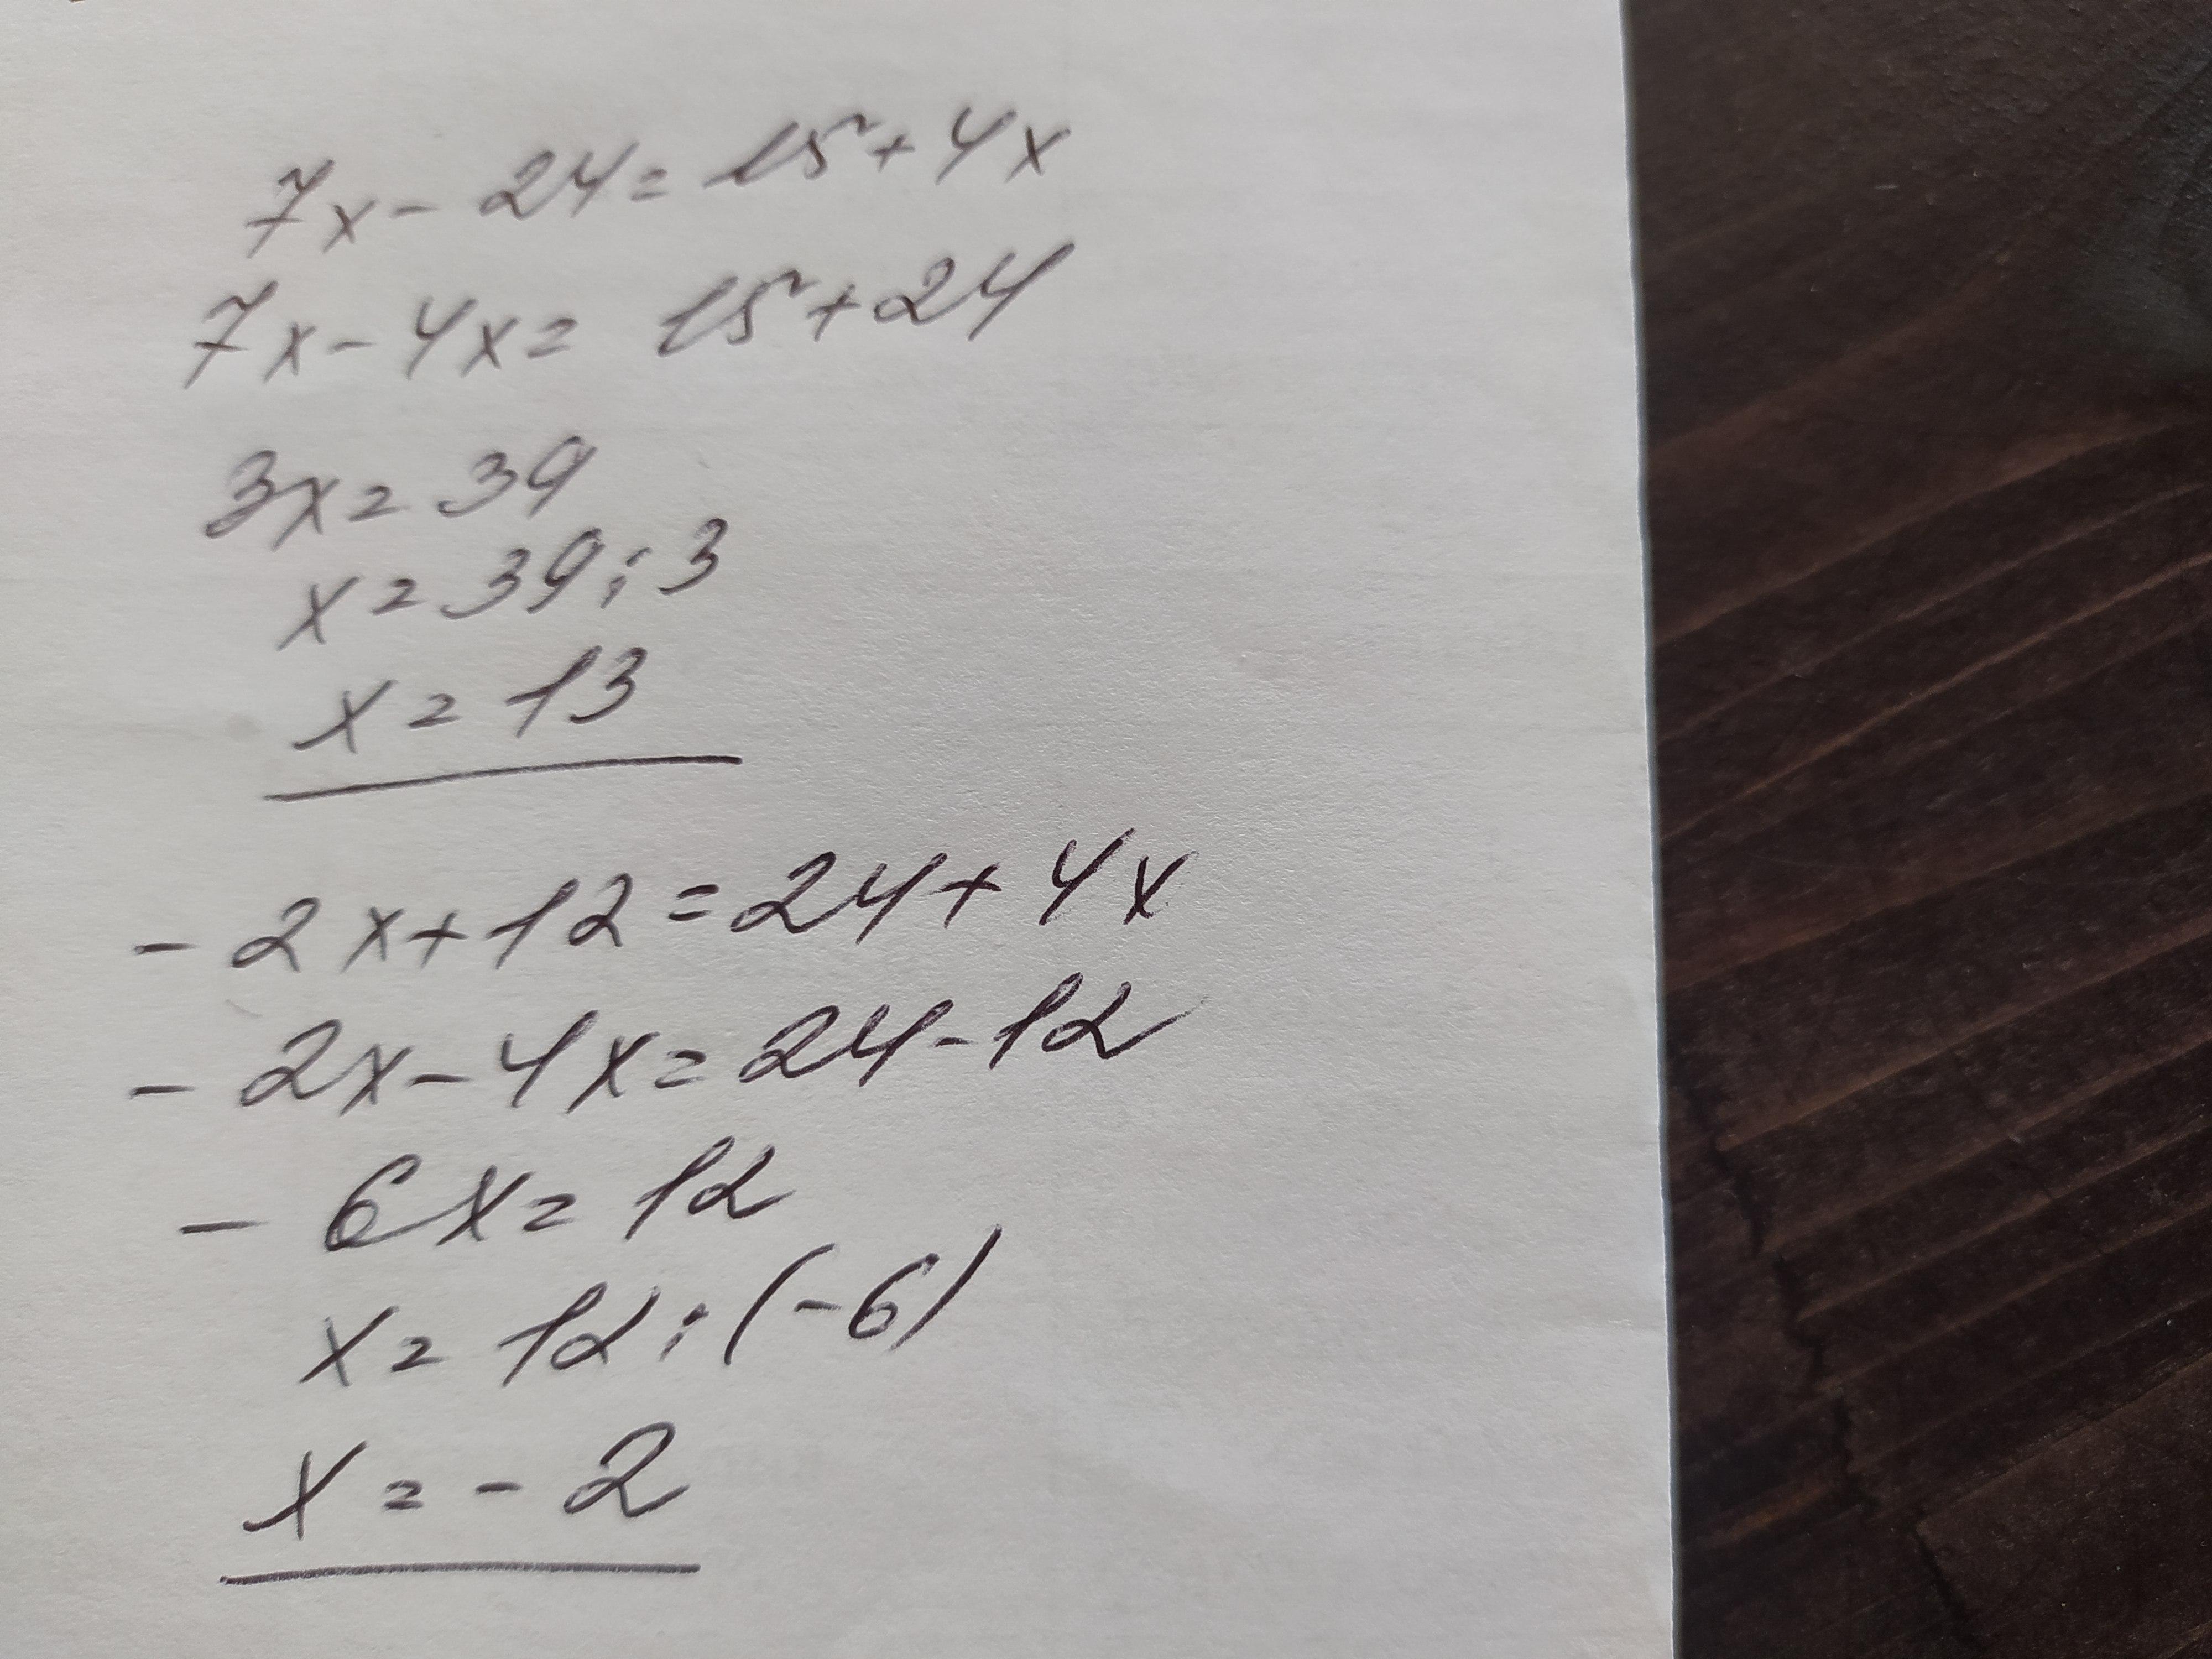 7x - 24 = 15 + 4x
7x - 4x = 15 + 24
3x = 39
x = 39 : 3
x = 13
- 2x + 12 = 24 + 4x
- 2x - 4x = 24 - 12
- 6x = 12
x = 12 : (-6)
x = - 2